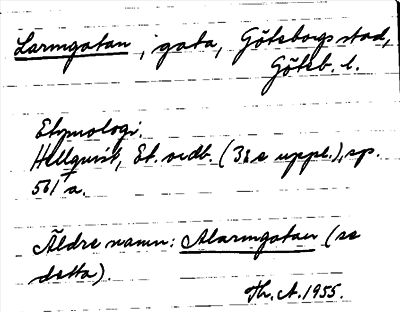 Larmgatan, gata, Göteborgs stad,
Göteb. l.
Etymologi:
Hellquist, Et. ordb. (3:e uppl.), sp.
561 a.
Äldre namn: Alarmgatan (se
detta).
Th. A. 1955.